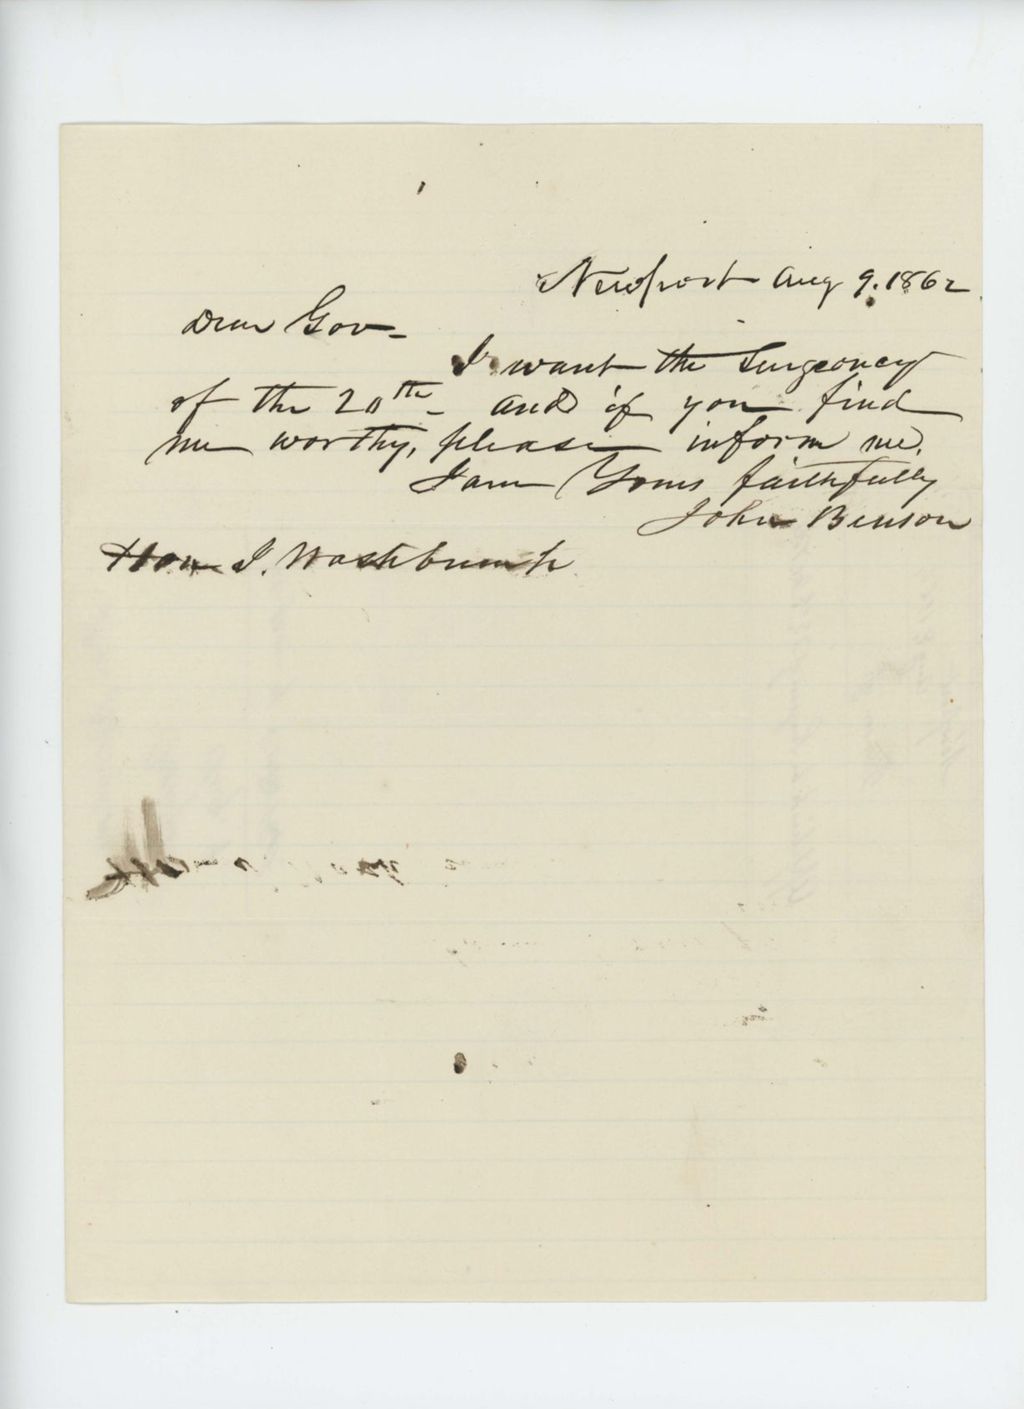 Newport Aug 9. 1862
Dear Gov-
I want the Surgeoncy
of the 20th- and if you find
me worthy, please inform me.
I am Yours faithfully
John Benson
Hon I. Washburn Jr